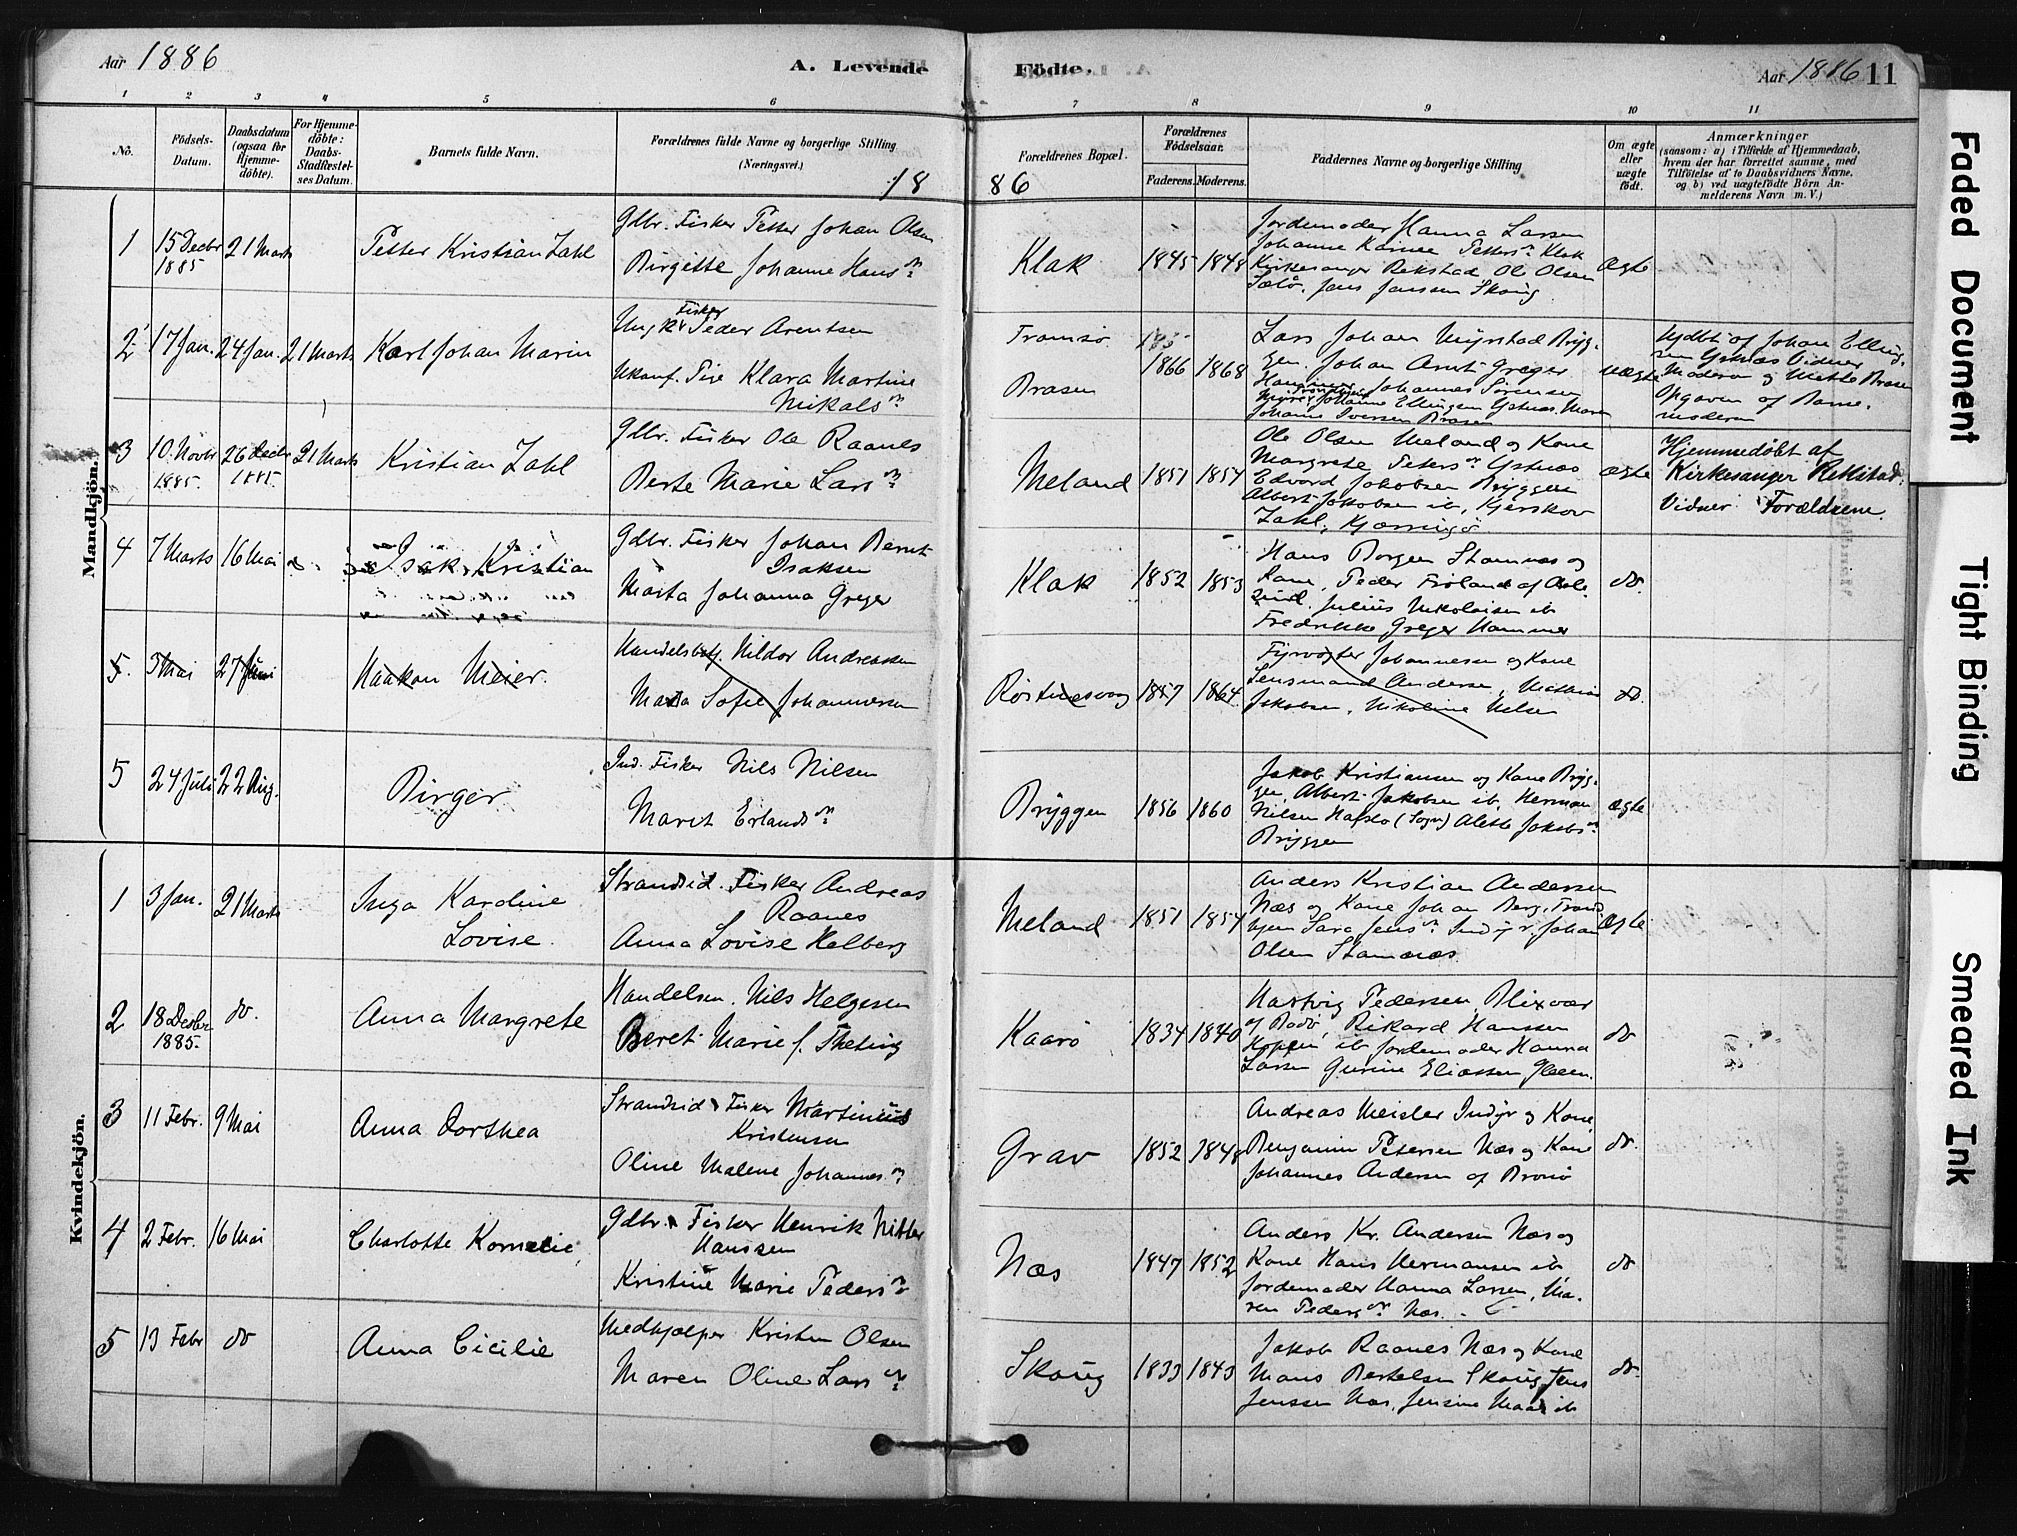 Aar 1886
A. Levende
Födte.
Aar 1886 11
1 2 3 4 5 6 7 8 9 10 11
No.
Födsels-
Datum.
Daabsdatum
(ogsaa for
Hjemme-
döbte).
For Hjemme-
döbte:
Daabs-
Stadfæstel-
ses Datum.
Barnets fulde Navn.
Forældrenes fulde Navne og borgerlige Stilling
(Næringsvei.)
Forældrenes Bopæl.
Forældrenes
Födselsaar.
Faderens. Moderens.
Faddernes Navne og borgerlige Stilling
Om ægte
eller
uægte
födt.
Anmærkninger
(saasom: a) i Tilfælde af Hjemmedaab,
hvem der har forrettet samme, med
Tilföielse af to Daabsvidners Navne,
og b) ved uægtefödte Börn An-
melderens Navn m. V.)
18 86
Mandkjön.
1 15 Decbr 1885 21 Marts
Petter Kristian Zahl
Gdbr. Fisker Petter Johan Olsen
Birgitte Johanne Hansdr
Klak 1845 1848
Jordemoder Hanna Larsen
Johanne Petters Klak
Kirkesanger Rekstad, Ole Olsen
Jens Jenssen Skoug
Ægte
2 17 Jan. 24 Jan. 21 Marts
Karl Johan Marin
Ungk. Fisker Peder Arentsen
Ukonf. Pige Klara Martine
Nikolsdr
Tromsø
Brasen
1866 1868
Lars Johan Myrstad Bryg-
gen, Johan Arnt Greger
Johannes Sörensen
Johanne Ellingsen
Johanne Iversen Brasen
uægte
Hjdbt af Johan Elling-
sen Vidner
Moderen og Mette Brasen
Opgaven af Barne-
moderen
3 10. Novbr 1885. 26 Decbr 1885. 21 Marts
Kristian Zahl
Gdbr. Fisker Ole Raanes
Berte Marie Larsdr
Meland 1851 1854
Ole Olsen Meland og Kone
Margrete Petersdr
Edvard Jakobsen Bryggen
Albert Jakobsen ib,
Zahl, Kjærringö
ægte
Hjemmedöbt af
Kirkesanger Rekstad.
Vidner Forældrene.
4 7 Marts 16 Mai
Isak Kristian
Gdbr. Fisker Johan Bernt
Isaksen
Marta Johanna Greger
Klak 1852 1853
Hans Borgen Stamnæs og
Kone, Peder Fröland af Aale-
sund. Julius Nikolaisen ib
Fredrikke Greger Hammer
do.
5 3 Mai 27 Juni
Haakon Meier.
Handelsbetj. Hildor Andreassen
Marta Sofie Johannesen
Röstnesvaag 1857 1864
Fyrvogter Johannesen og Kone
Lensmand Andersen, Mathias
Jakobsen, Nikoline Nilsen
do.
5 24 Juli 22 Aug.
Birger
Ind. Fisker Nils Nilsen
Marit Erlandsdr
Bryggen 1856 1860
Jakob Kristiansen og Kone Bryg-
gen, Albert Jakobsen ib, Herman
Nilsen Hafslo (Sogn) Alette Jakobsdr
Bryggen
ægte
Kvindekjön.
1 3 Jan. 21 Marts
Inga Karoline
Lovise.
Strandsid. Fisker Andreas
Raanes
Anna Lovise Helberg
Meland 1851 1854
Anders Kristian Andersen
Næs og Kone Johan Berg, Trond-
hjem Sara Jensdr Indyr, Johan
Olsen Stamnæs.
Ægte
2 18 Decbr 1885. do.
Anna Margrete
Handelsm. Nils Helgesen
Beret Marie f. Theting
Kaarö 1834 1840
Hartvig Pedersen, Blixvær
af Bodö, Rikard Hanssen
ib Jordemoder Hanna
Larsen Gurine Eliassen
do
3 11 Febr. 9 Mai
Anna Dorthea
Strandsid. Fisker Martinius
Kristensen
Oline Malene Johannesdr
Grav 1852 1848
Andreas Meisler Indyr og Kone
Benjamin Petersen Næs og Kone
Johannes Andersen af Brönö
do.
4 2 Febr. 16 Mai
Charlotte Kornelie
Gdbr. Fisker Henrik
Hanssen
Kristine Marie Pedersdr
Næs 1847 1852
Anders Kr. Andersen Næs og
Kone Hans Hermansen ib
Jordemoder Hanna Larsen, Ma-
ren Pedersdr Næs.
do
5 13 Febr do
Anna Cicilie
Medhjælper Kristen Olsen
Maren Oline Larsdr
Skoug 1833 1843
Jakob Raanes Næs og Kone
Hans Bertelsen Skoug, Jens
Jenssen Næs, Jensine ib
do.
Faded Document
Tight Binding
Smeared Ink